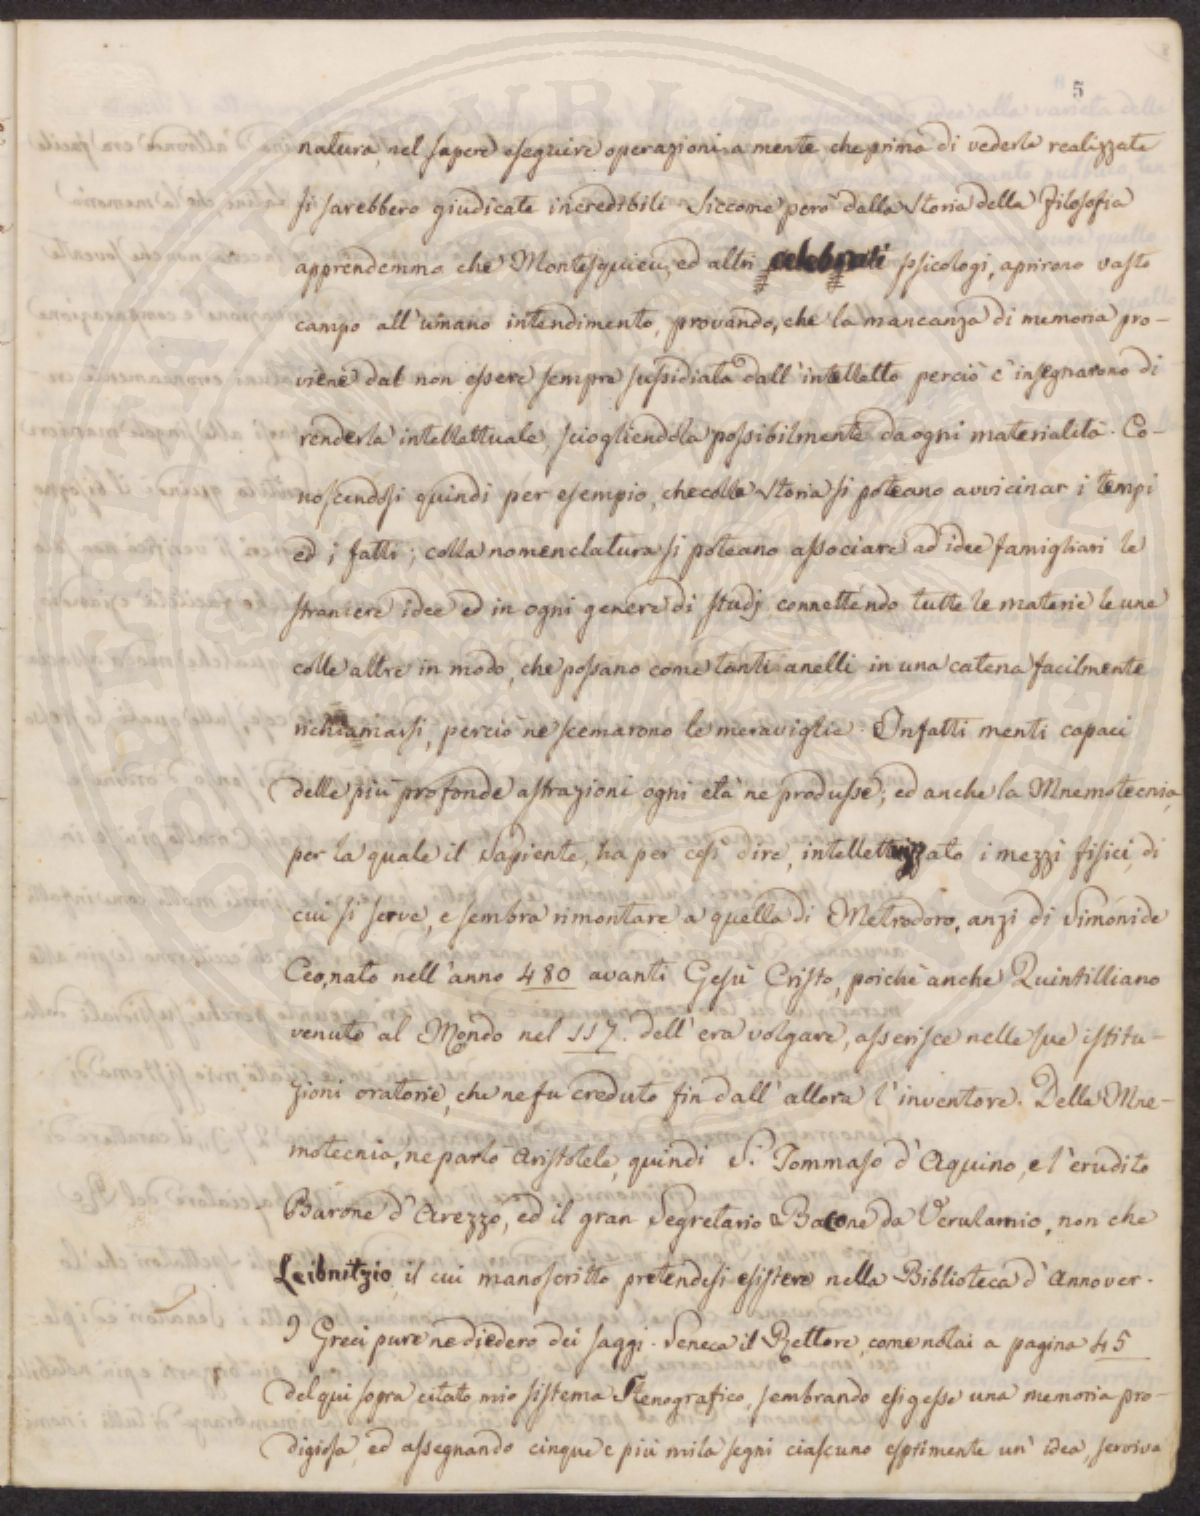 5
natura, nel sapere eseguire operazioni a mente che prima di vederle realizzate
si sarebbero giudicate incredibili. Siccome però dalla Storia della filosofia
apprendemmo che Montesquieu, ed altri celebrati psicologi, aprirono vasto
campo all'umano intendimento, provando, che la mancanza di memoria pro-
viene dal non essere sempre sussidiata dall'intelletto perciò c'insegnarono di
renderla intellettuale, sciogliendola possibilmente da ogni materialità. Co-
noscendosi quindi per esempio, che colla Storia si poteano avvicinar i tempi
ed i fatti; colla nomenclatura si poteano associare ad idee famigliari le
straniere idee ed in ogni genere di studj connettendo tutte le materie le une
colle altre in modo, che possano come tanti anelli in una catena facilmente
richiamarsi, perciò ne scemarono le meraviglie. Infatti menti capaci
delle più profonde astrazioni ogni età ne produsse; ed anche la Mnemotecnia,
per la quale il Sapiente, ha per così dire, intellettuizzato i mezzi fisici, di
cui si serve, e sembra rimontare a quella di Metrodoro, anzi di Simonide
Ceo, nato nell'anno 480 avanti Gesù Cristo, poichè anche Quintilliano
venuto al Mondo nel 117. dell'era volgare, asserisce nelle sue istitu-
zioni oratorie, che ne fu creduto fin dall'allora l'inventore. Della Mne-
motecnia, ne parlò Aristotele, quindi S. Tommaso d'Aquino, e l'erudito
Barone d'Arezzo, ed il gran Segretario Bacone da Verulamio, non che
Leibnitzio, il cui manoscritto pretendesi esistere nella Biblioteca d'Annover.
I Greci pure ne diedero dei saggi. Seneca il Rettore, come notai a pagina 45
del qui sopra citato mio sistema Stenografico, sembrando esigesse una memoria pro-
digiosa, ed assegnando cinque e più mila segni ciascuno esprimente un' idea, serviva